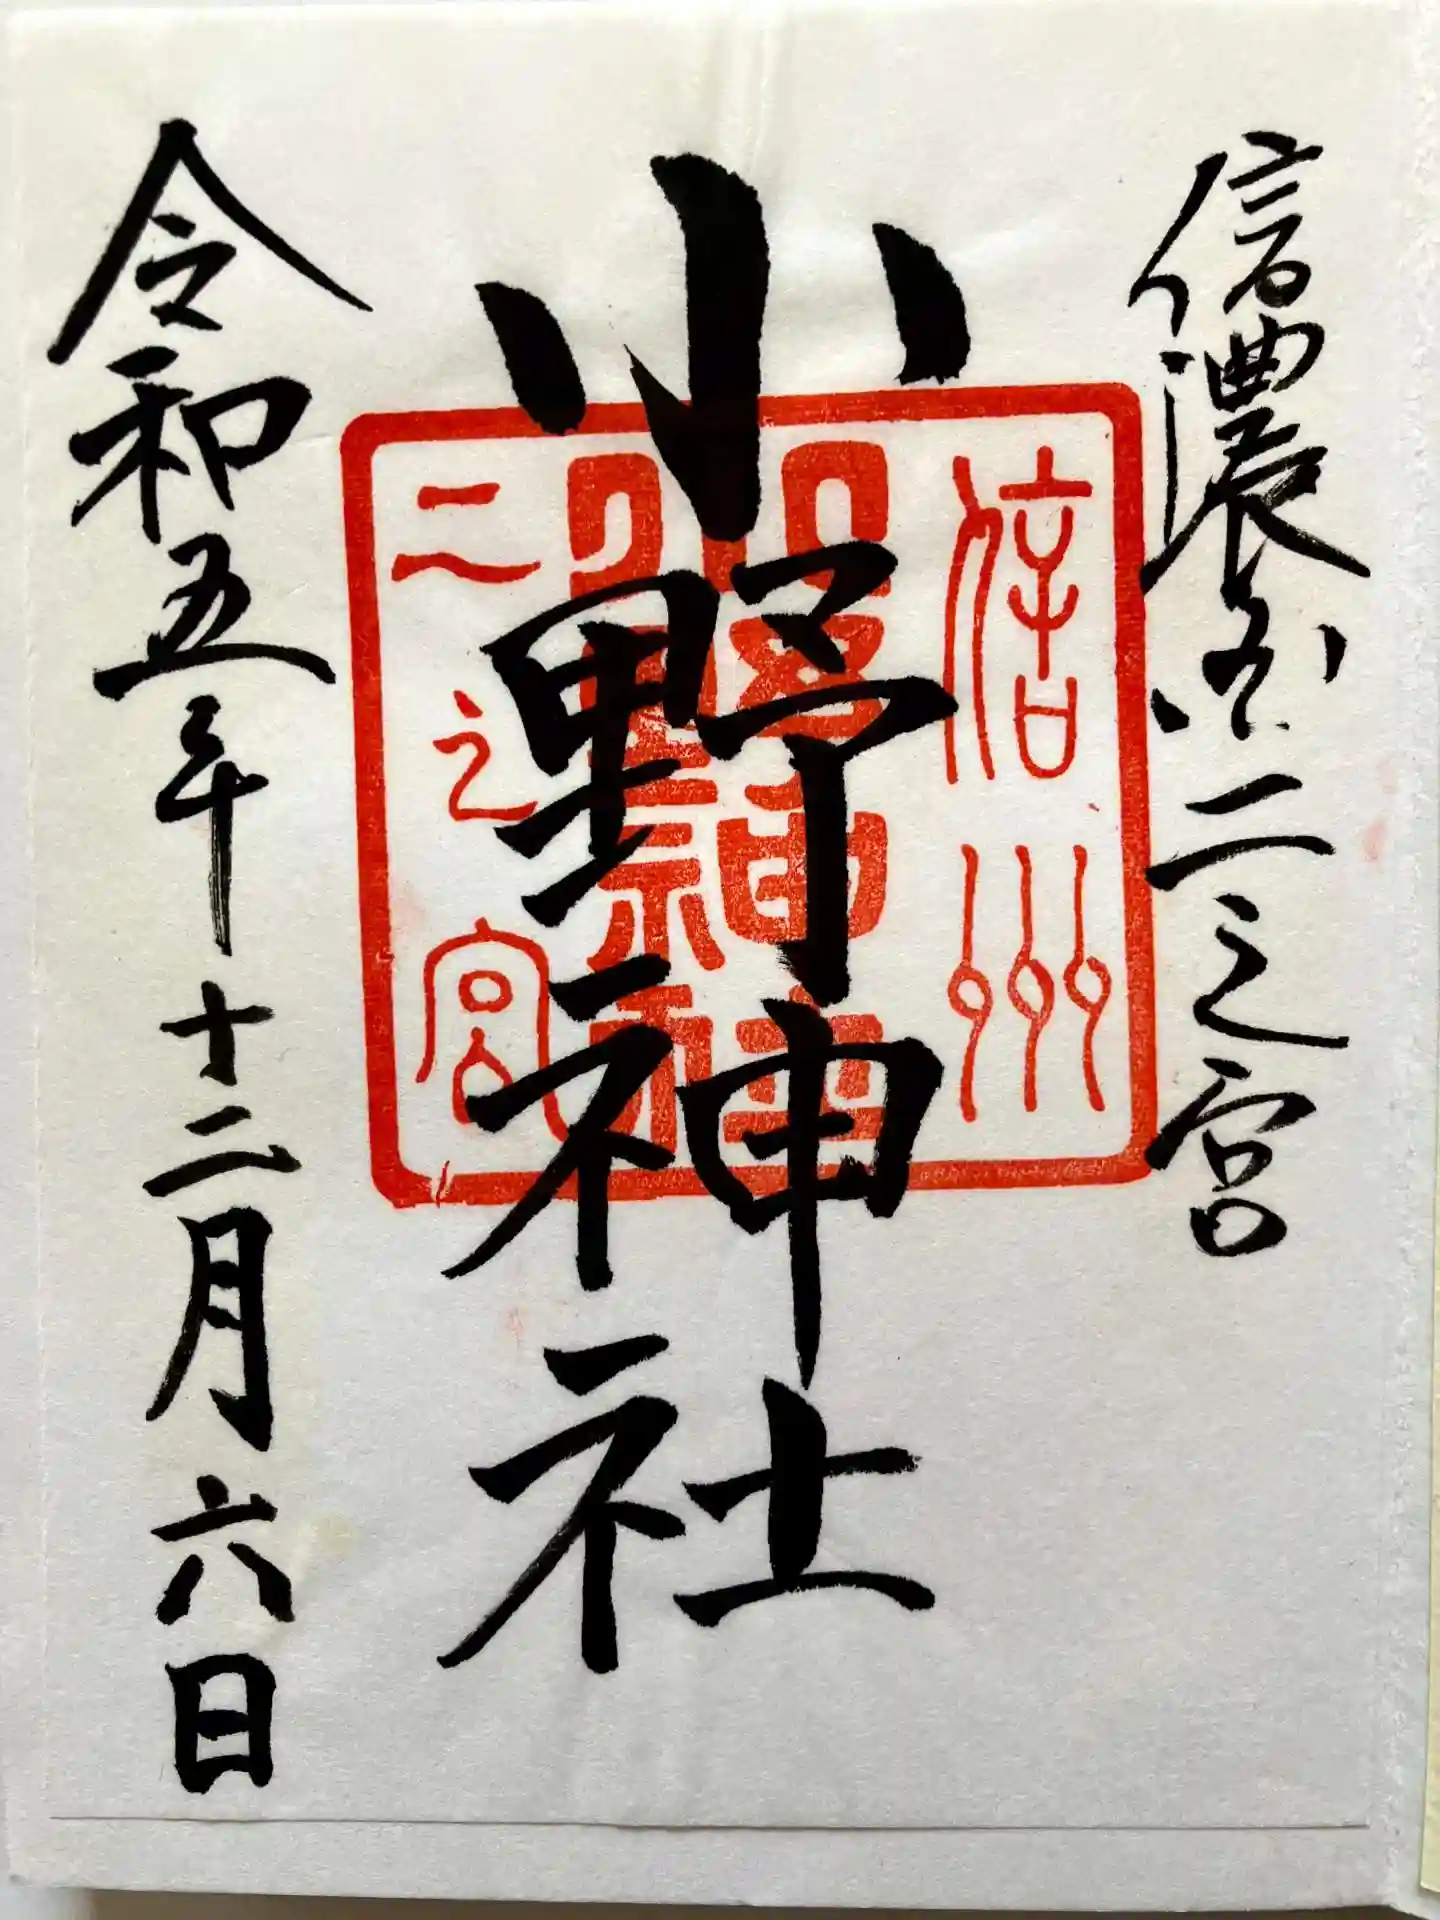 信濃国二之宮
小野神社
令和五年十二月六日
信州
二之宮